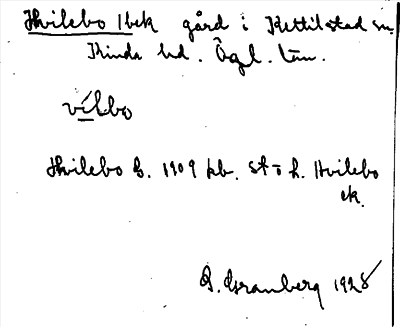 Hvilebo 1 bek gård i Kettilstad sn
Kinda hd. Ögl. län.
vílbo
Hvilebo G. 1909 kb. st o l. Hvilebo
ek.
G. Granberg 1928